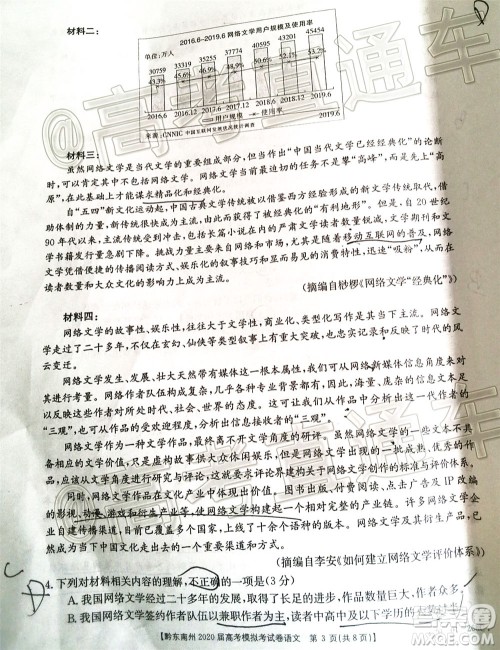 材料二：
2016.6-2019.6 网络文学用户规模及使用率
单位：万人
30759 33319 35255 37774 40595 43201 45454
43.3% 45.6% 46.9% 48.9% 50.6% 52.1% 53.2%
2016.6 2016.12 2017.6 2017.12 2018.6 2018.12 2019.6
用户规模 使用率
来源：CNNIC 中国互联网发展状况统计调查
材料三：
虽然网络文学是当代文学的重要组成部分，但当作出“中国当代文学已经经典化”的论断
时，可以肯定其中不包括网络文学。网络文学当前最迫切的任务不是攀“高峰”，而是先上“高
原”，在此基础上才能谋求精品化和经典化。
自“五四”新文化运动起，中国古典文学传统被以借鉴西方经验形成的新文学传统取代，借
助体制的力量，新传统很快成为主流，由此形成了有经典者被经典化的“有利地形”。但是，自20世纪
90年代以来，主流传统受到冲击，包括长篇小说在内的严肃文学读者数量锐减，文学期刊和文
学书籍发行量锐减，大量读者主要来自网络和市场，尤其是随着移动互联网的普及，网络
文学凭借便捷的传播阅读方式、娱乐化的叙事技巧和显而易见的消费特性，迅速“吸粉”，从而在
读者数量和大众文化的影响力上成为主流。
（摘编自桫椤《网络文学“经典化”》）
材料四：
网络文学的故事性、娱乐性，往往大于文学性，商业化、类型化写作是其当下主流。网络文
学走过了二十多年，不仅在玄幻、仙侠等类型创作上取得了成就，也记录和反映了时代的风
云变迁。
网络文学发生、发展、壮大天然带有媒体变革的因素，可以从网络新媒体信息传播的角度
对其进行考量。网络作者队伍构成复杂，几乎各种专业背景都有，因此，海量、庞杂的信息中也
可以反映这些作者对时代、社会、世界的态度。这可以从作品中分析出这一代作者的
“三观”，也可从作品的受欢迎程度，分析出当时接受者的“三观”。
网络文学作为一种文学作品，最根本的还是要从文学的角度来研究。虽然网络文学的一些文本不具
备应有的文学价值，只是提供大众休闲娱乐，但是网络文学中出现的一批成熟、优秀的作
品，应该从文学角度进行研究与评论，这样就可以构建基于网络文学创作的标准与评价体系。
同时，网络文学作品在文化产业中体现出价值。图书出版、付费阅读、点击广告及IP改编
的影视、动漫、游戏和衍生音乐等，使网络文学构建起一个相对完整的产业链。许多网络文学企
业自建传播渠道，目前已经覆盖了多个国家，上线了十余个语种的版本。网络文学产业已然
成为当下中国文化走出去的一个重要现象。
（摘编自李安《如何建立网络文学评价体系》）
4. 下列对材料相关内容的理解，不正确的一项是（3分）
A. 我国网络文学经过二十多年的发展，取得了长足的进步，作品数量巨大、作者众多，
B. 我国网络文学签约作者队伍以兼职作者为主，读者中高中及以下学历的
【黔东南州2020届高考模拟考试卷语文 第3页(共8页)】
高考直通车
高考直通车